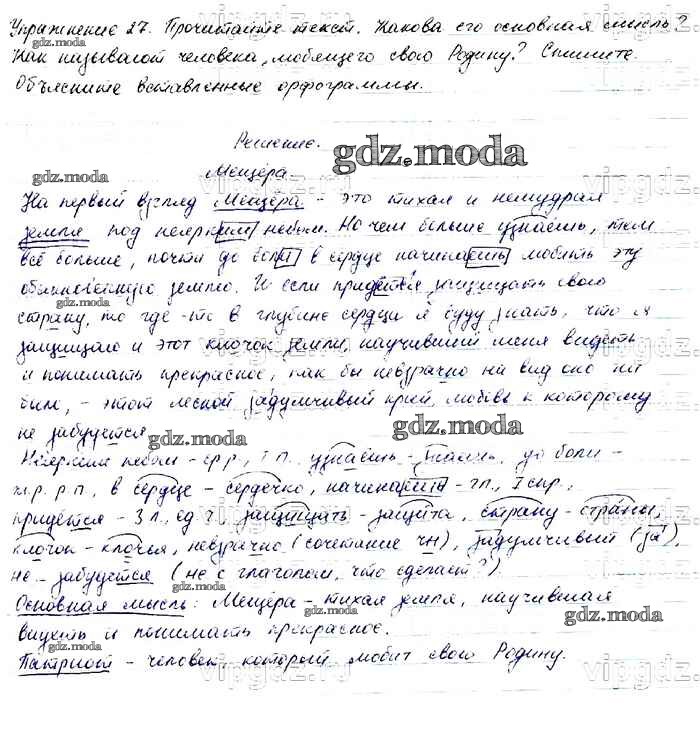 Упражнение 27. Прочитайте текст. Какова его основная мысль?
Как называют человека, любящего свою Родину? Спишите.
Объясните вставленные орфограммы.
Решение.
gdz.moda
Мещёра.
На первый взгляд Мещёра - это тихая и немудрая
земля под неярким небом. Но чем больше узнаёшь, тем
всё больше, почти до боли в сердце начинаешь любить эту
обыкновенную землю. И если придётся защищать свою
страну, то где-то в глубине сердца я буду знать, что я
защищаю и этот клочок земли, научивший меня видеть
и понимать прекрасное, как бы невзрачно на вид оно ни
было, - этот лесной задумчивый край, любовь к которому
не забудется.
Неярким небом - ср.р., т.п., узнаёшь - знать, до боли -
ж.р. р.п., в сердце - сердечко, начинаешь - гл., I спр.,
придётся - 3 л., ед.ч., защищать - защита, страну - страны,
клочок - клочья, невзрачно (сочетание чн), задумчивый (за),
не забудется (не с глаголом, что сделает?).
Основная мысль: Мещёра - тихая земля, научившая
видеть и понимать прекрасное.
Патриот - человек, который любит свою Родину.